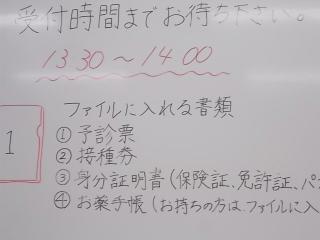 受付時間までお待ち下さい。
13 30 ～ 14 00
ファイルに入れる書類
1
① 予診票
② 接種券
③ 身分証明書(保険証、免許証、パ
④ お薬手帳(お持ちの方は、ファイルに入